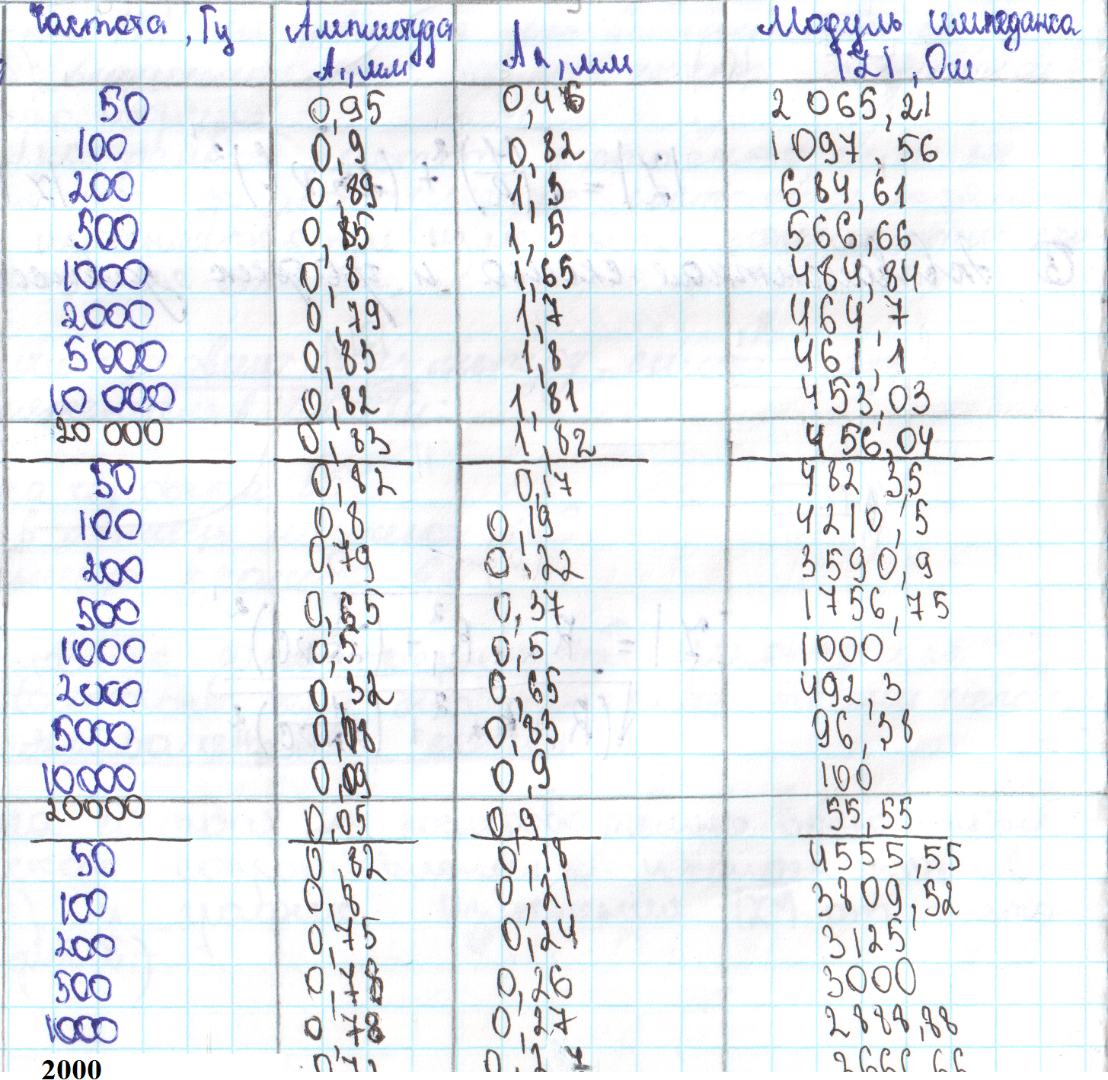 Частота, Гц Амплитуда А₁, мм А₂, мм Модуль импеданса |Z|, Ом
50 0,95 0,46 2065,21
100 0,9 0,82 1097,56
200 0,89 1,3 684,61
500 0,85 1,5 566,66
1000 0,8 1,65 484,84
2000 0,79 1,7 464,7
5000 0,83 1,8 461,1
10 000 0,82 1,81 453,03
20 000 0,83 1,82 456,04
50 0,82 0,17 482 3,5
100 0,8 0,19 4210,5
200 0,79 0,22 3590,9
500 0,65 0,37 1756,75
1000 0,5 0,5 1000
2000 0,32 0,65 492,3
5000 0,08 0,83 96,38
10000 0,09 0,9 100
20000 0,05 0,9 55,55
50 0,82 0,18 4555,55
100 0,8 0,21 3809,52
200 0,75 0,24 3125
500 0,78 0,26 3000
1000 0,78 0,27 2888,88
2000